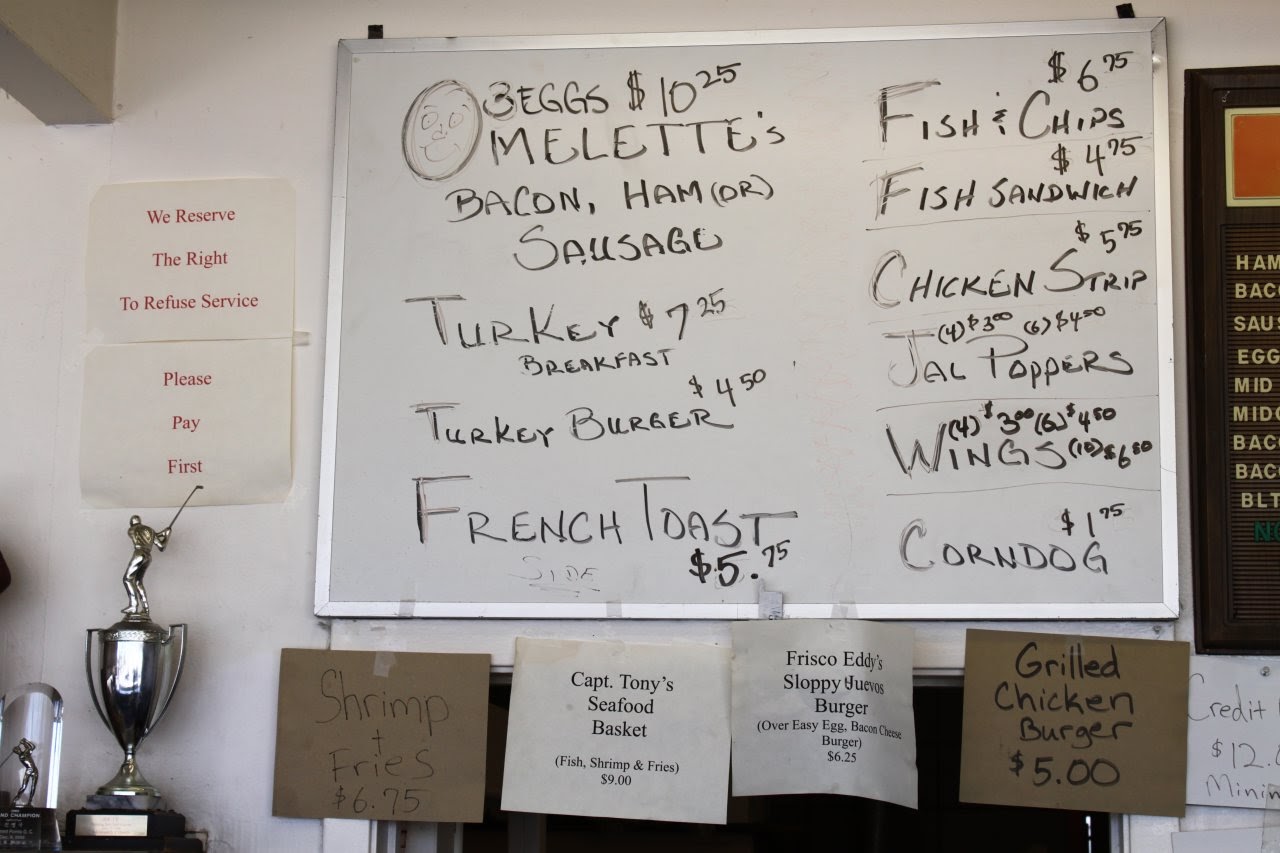 We Reserve
The Right
To Refuse Service
Please
Pay
First
3 EGGS $10 25
OMELETTE's
BACON, HAM (OR)
SAUSAGE
TURKEY $7 25
BREAKFAST
$4 50
TURKEY BURGER
FRENCH TOAST
SIDE $5.75
$6 75
FISH & CHIPS
$4 75
FISH SANDWICH
$5 75
CHICKEN STRIP
(4) $3 00 (6) $4 50
JAL POPPERS
(4) $3 00 (6) $4 50
WINGS (10) $6 50
$1 75
CORNDOG
HAM
BACO
SAUS
EGG
MID
MIDG
BACO
BACO
BLT
Shrimp
+
Fries
$6.75
Capt. Tony's
Seafood
Basket
(Fish, Shrimp & Fries)
$9.00
Frisco Eddy's
Sloppy Juevos
Burger
(Over Easy Egg, Bacon Cheese
Burger)
$6.25
Grilled
Chicken
Burger
$5.00
Credit
$12.
Minim
ND CHAMPION